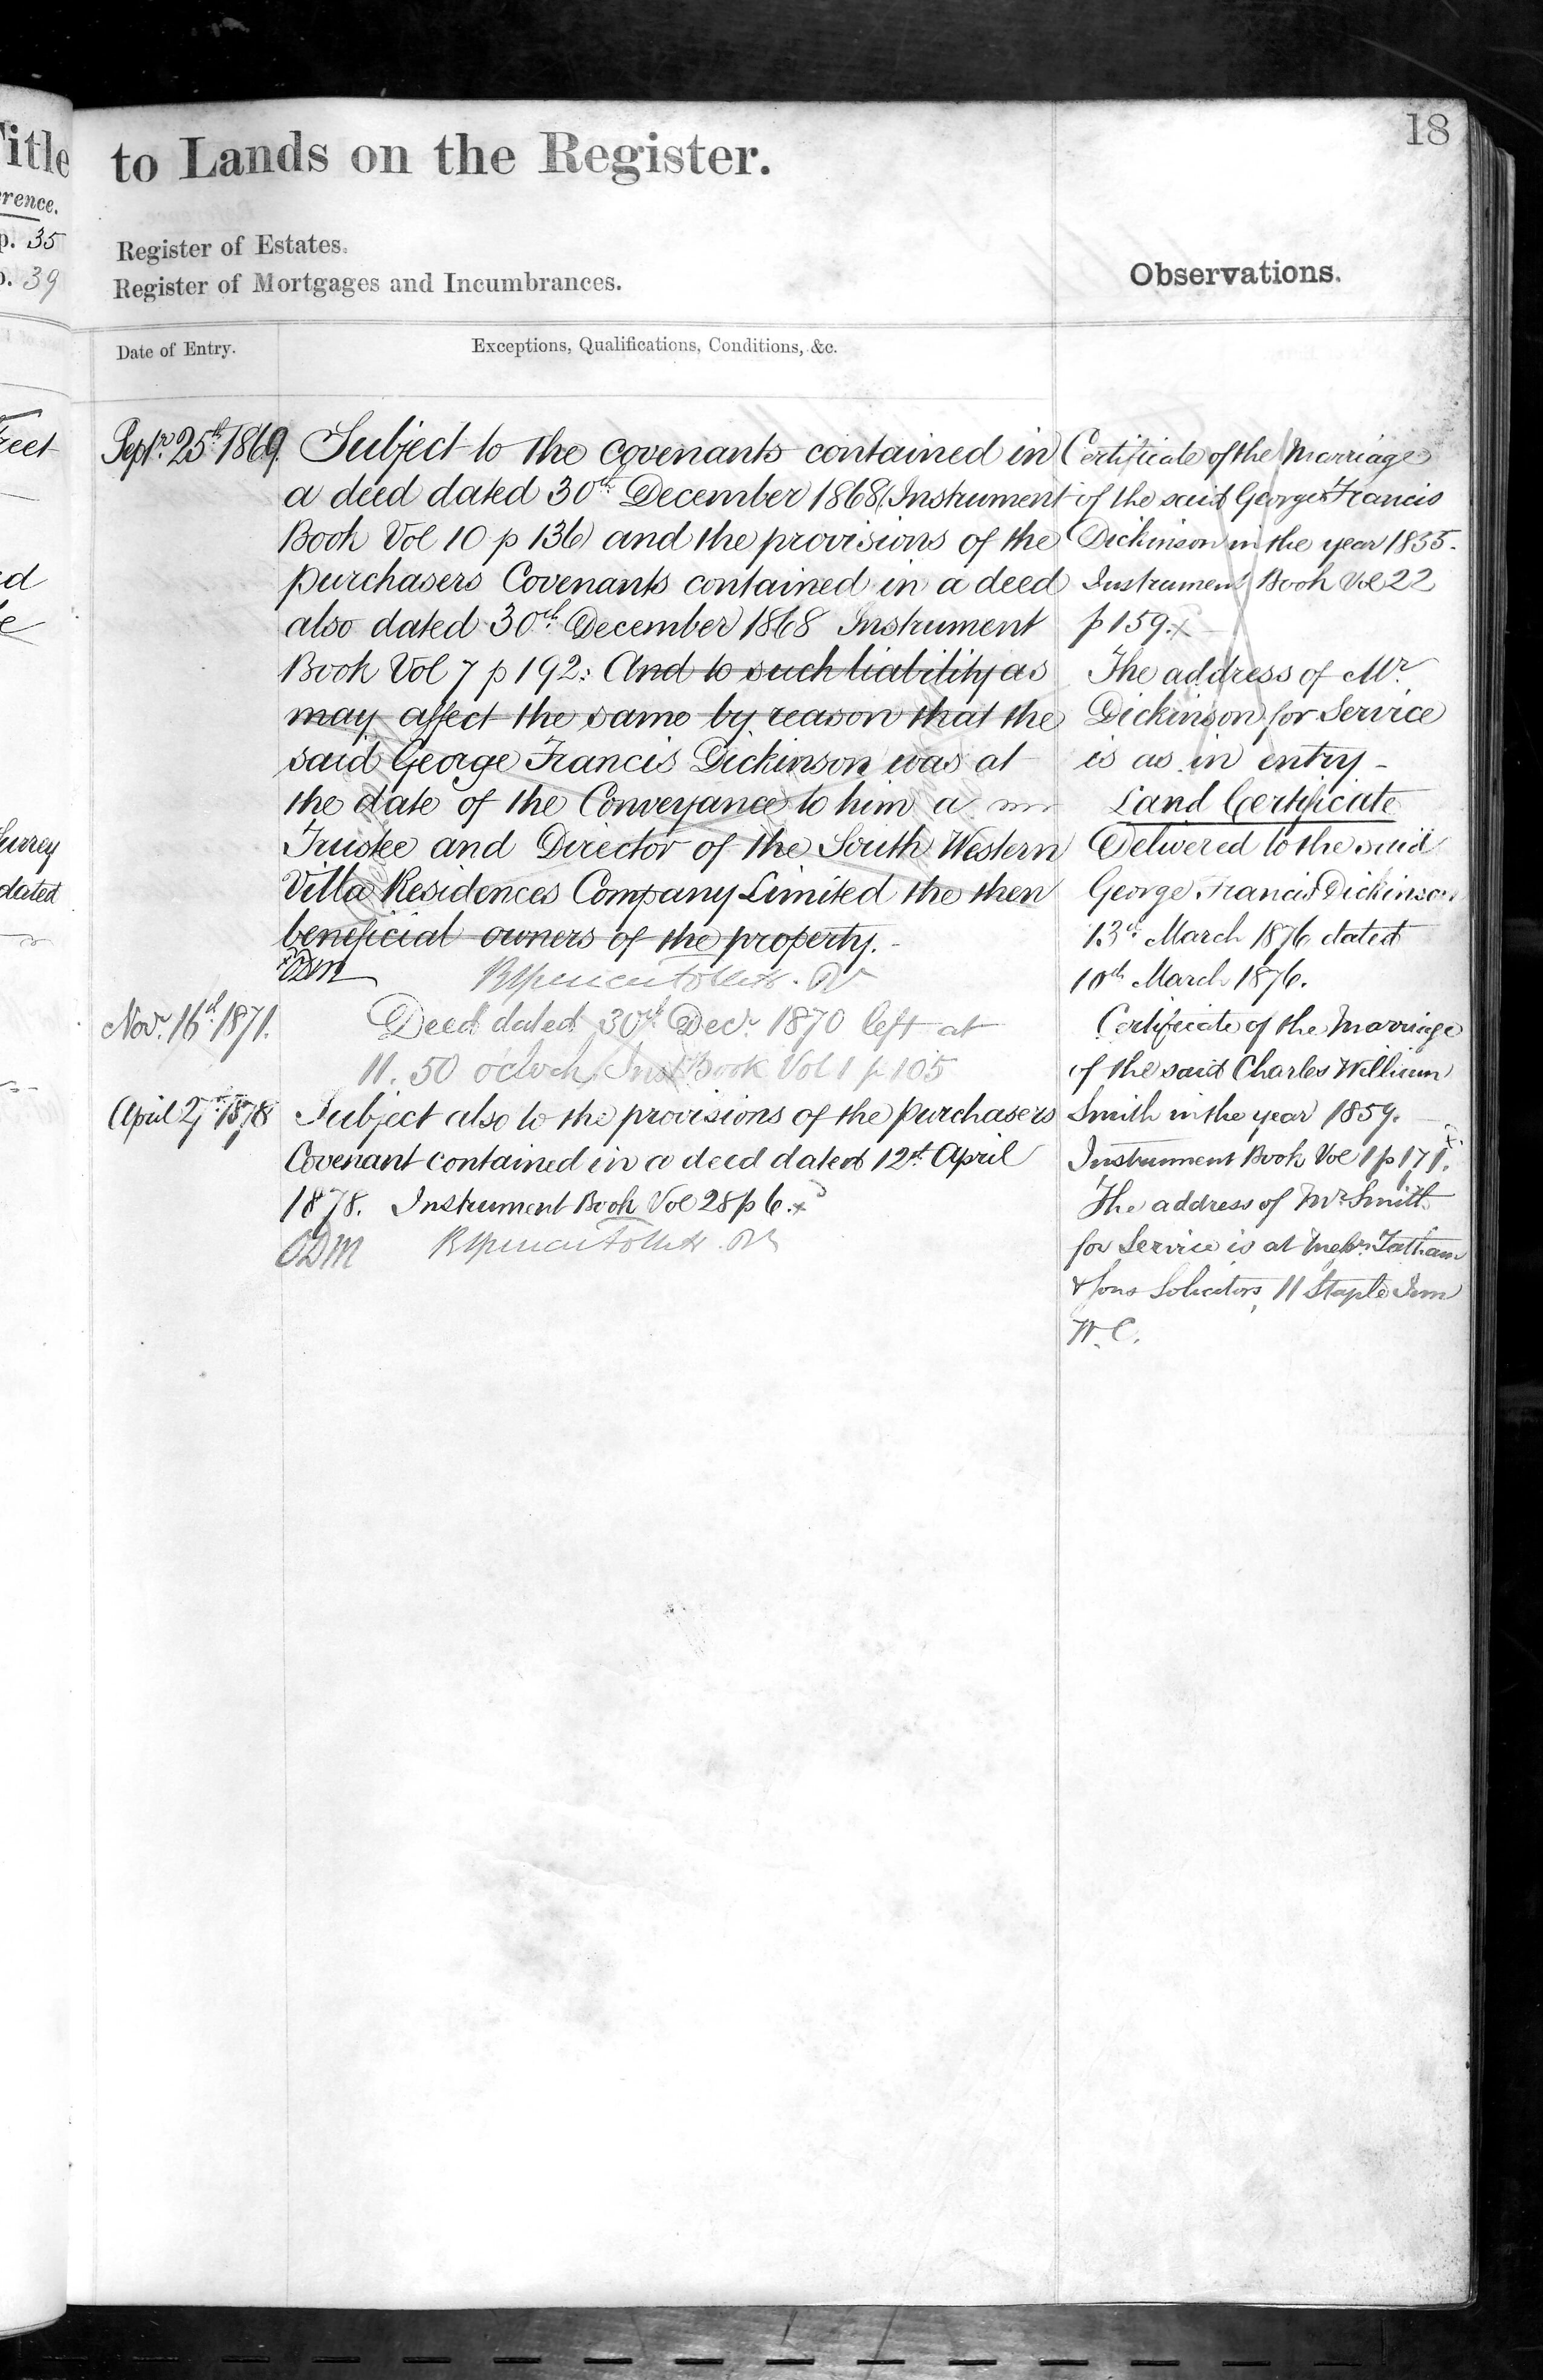 Title
rence.
p. 35
p. 39
reet
ed
Surrey
dated
18
to Lands on the Register.
Register of Estates.
Register of Mortgages and Incumbrances.
Observations.
Date of Entry.
Exceptions, Qualifications, Conditions, &c.
Septr. 25th 1869.
Subject to the covenants contained in
a deed dated 30th December 1868 (Instrument
Book Vol 10 p 136) and the provisions of the
purchasers Covenants contained in a deed
also dated 30th December 1868 Instrument
Book Vol 7 p 192: And to such liability as
may affect the same by reason that the
said George Francis Dickinson was at
the date of the Conveyance to him a
Trustee and Director of the South Western
Villa Residences Company Limited the then
beneficial owners of the property.
ODM
Novr. 16th 1871.
Deed dated 30th Decr. 1870 left at
11.50 o'clock Inst Book Vol 1 p 105
April 27th 1878
Subject also to the provisions of the purchasers
Covenant contained in a deed dated 12th April
1878. Instrument Book Vol 28 p 6. x
ODM
Certificate of the Marriage
of the said George Francis
Dickinson in the year 1835.
Instrument Book Vol 22
p 159. x
The address of Mr.
Dickinson for Service
is as in entry -
Land Certificate
Delivered to the said
George Francis Dickinson
13th March 1876 dated
10th March 1876.
Certificate of the Marriage
of the said Charles William
Smith in the year 1859.
Instrument Book Vol 1 p 171. x
The address of Mr Smith
for Service is at Messrs. Tatham
& Sons Solicitors, 11 Staple Inn
W.C.